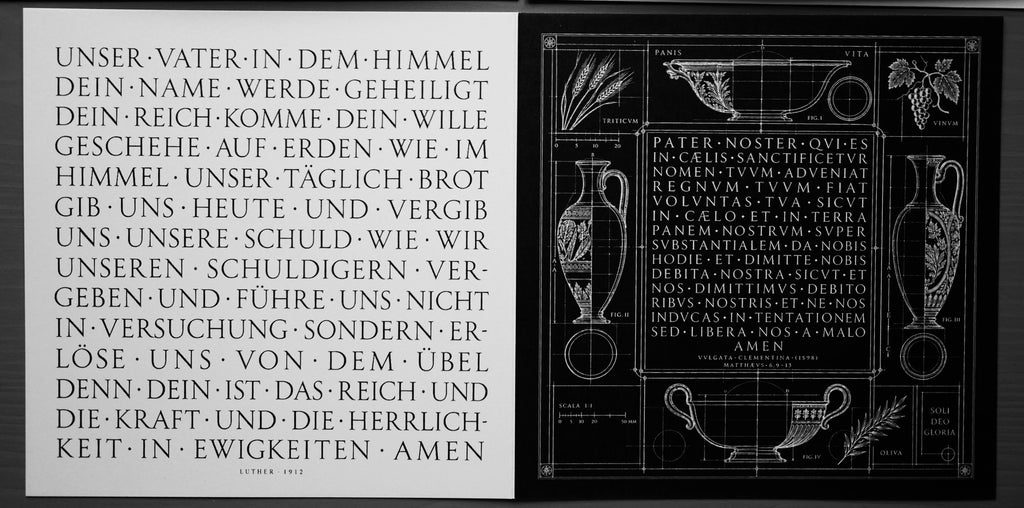 UNSER·VATER·IN·DEM·HIMMEL
DEIN·NAME·WERDE·GEHEILIGT
DEIN·REICH·KOMME·DEIN·WILLE
GESCHEHE·AUF·ERDEN·WIE·IM
HIMMEL·UNSER·TÄGLICH·BROT
GIB·UNS·HEUTE·UND·VERGIB
UNS·UNSERE·SCHULD·WIE·WIR
UNSEREN·SCHULDIGERN·VER-
GEBEN·UND·FÜHRE·UNS·NICHT
IN·VERSUCHUNG·SONDERN·ER-
LÖSE·UNS·VON·DEM·ÜBEL
DENN·DEIN·IST·DAS·REICH·UND
DIE·KRAFT·UND·DIE·HERRLICH-
KEIT·IN·EWIGKEITEN·AMEN
LUTHER·1912
PANIS
VITA
FIG. I
TRITICVM
VINVM
0 5 10 20
PATER·NOSTER·QVI·ES
IN·CÆLIS·SANCTIFICETVR
NOMEN·TVVM·ADVENIAT
REGNVM·TVVM·FIAT
VOLVNTAS·TVA·SICVT
IN·CÆLO·ET·IN·TERRA
PANEM·NOSTRVM·SVPER
SVBSTANTIALEM·DA·NOBIS
HODIE·ET·DIMITTE·NOBIS
DEBITA·NOSTRA·SICVT·ET
NOS·DIMITTIMVS·DEBITO
RIBVS·NOSTRIS·ET·NE·NOS
INDVCAS·IN·TENTATIONEM
SED·LIBERA·NOS·A·MALO
AMEN
VVLGATA·CLEMENTINA·(1598)
MATTHÆVS·6,9-13
FIG. II
FIG. III
SCALA 1:1
0 5 10 20 50 MM
FIG. IV
OLIVA
SOLI
DEO
GLORIA